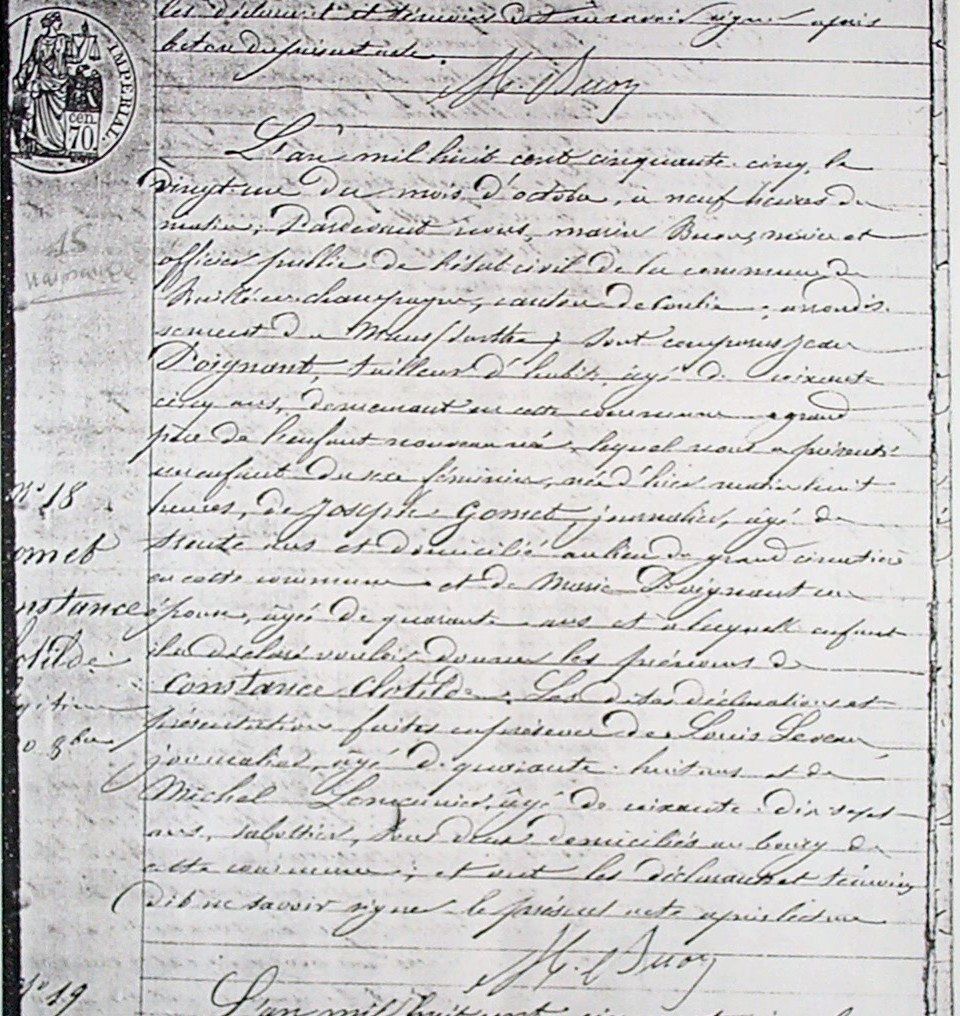 les déclarant et témoins dit ne savoir signer après
lecture du présent acte.
M. Buon
IMPERIAL
cen.
70
L'an mil huit cent cinquante cinq, le
vingt un du mois d'octobre, à neuf heures du
matin; Pardevant nous, marin Buon, maire et
officier public de l'état civil de la commune de
Ruillé en champagne, canton de Conlie, arrondis-
sement du Mans (Sarthe) sont comparus jean
Poignant tailleur d'habits, âgé de soixante
cinq ans, demeurant en cette commune grand
père de l'enfant nouveau né, lequel nous a présenté
un enfant du sexe féminin, né d'hier matin huit
heures, de Joseph Gomet, journalier, âgé de
trente ans et domicilié au lieu du grand cimetière
en cette commune et de Marie Poignant son
épouse, âgée de quarante ans et auquel enfant
il a déclaré vouloir donner les prénoms de
Constance Clotilde. Les dites déclarations et
présentation faites en présence de Louis Leveau
journalier, âgé de quarante huit ans et de
Michel Lemeunier, âgé de soixante dix sept
ans, sabottier, tous deux domiciliés au bourg de
cette commune; et ont les déclarant et témoins
dit ne savoir signer le présent acte après lecture
M. Buon
15
naissance
N° 18
omet
nstance
lotilde
gitime
0 8bre
N° 19
L'an mil huit cent